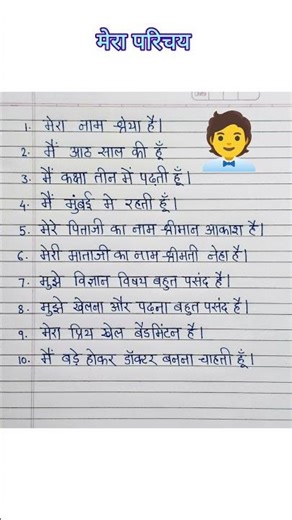 मेरा परिचय
1. मेरा नाम श्रेया है।
2. मैं आठ साल की हूँ
3. मैं कक्षा तीन में पढ़ती हूँ।
4. मैं मुंबई मे रहती हूँ।
5. मेरे पिताजी का नाम श्रीमान आकाश है।
6. मेरी माताजी का नाम श्रीमती नेहा है।
7. मुझे विज्ञान विषय बहुत पसंद है।
8. मुझे खेलना और पढ़ना बहुत पसंद है।
9. मेरा प्रिय खेल बैडमिंटन है।
10. मैं बड़े होकर डॉक्टर बनना चाहती हूँ।